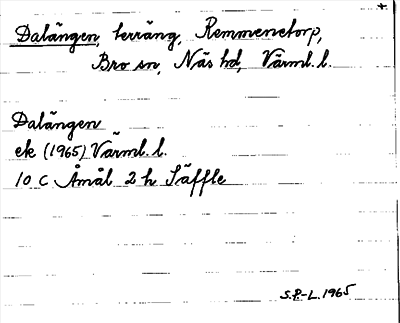 Dalängen, terräng, Remmenetorp,
Bro sn, Näs hd, Värml. l.
Dalängen
ek (1965) Värml. l.
10 C Åmål 2 h Säffle
S.P.-L. 1965